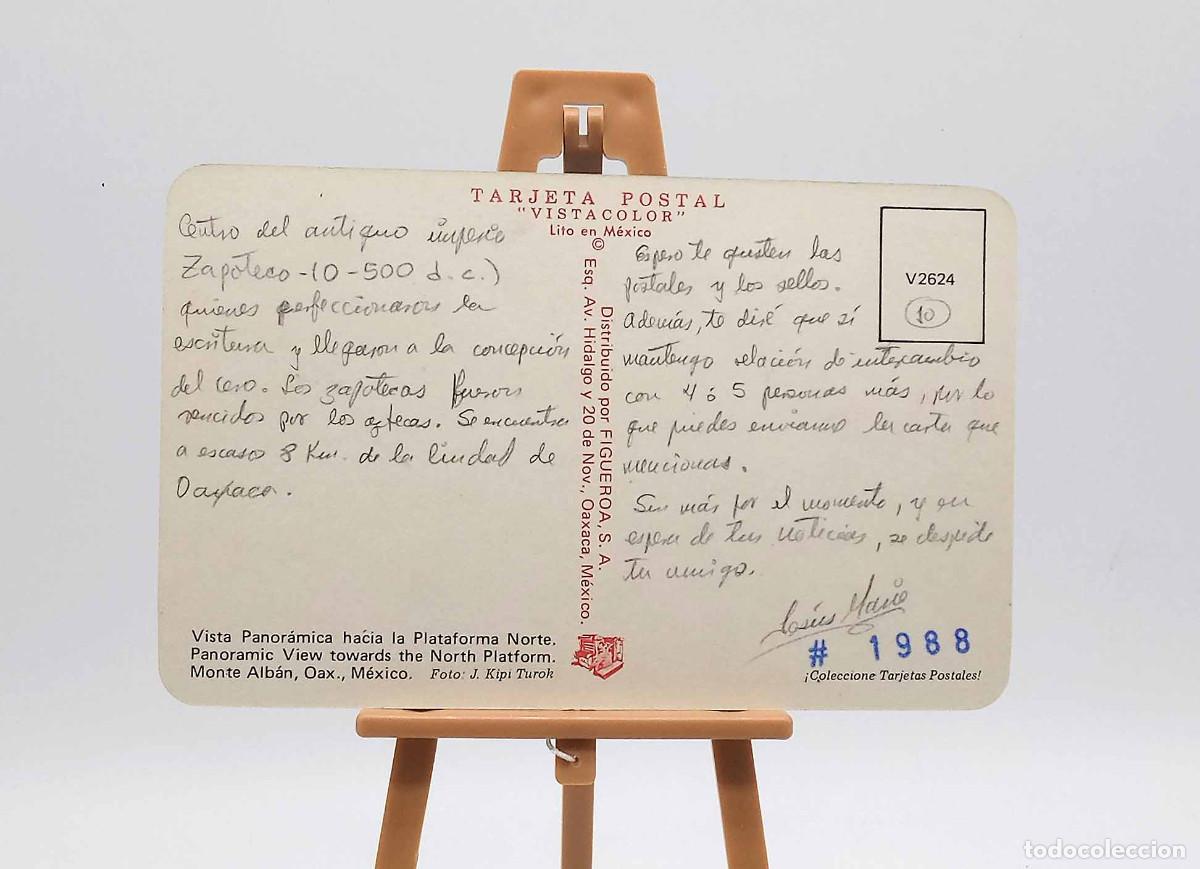 TARJETA POSTAL
"VISTACOLOR"
Lito en México
Centro del antiguo imperio
Zapoteco - (0 - 500 d.c.)
quienes perfeccionaron la
escritura y llegaron a la concepción
del cero. Los zapotecas fueron
vencidos por los aztecas. Se encuentra
a escasos 8 Km. de la Ciudad de
Oaxaca.
Vista Panorámica hacia la Plataforma Norte.
Panoramic View towards the North Platform.
Monte Albán, Oax., México. Foto: J. Kipi Turok
Distribuido por FIGUEROA, S. A.
© Esq. Av. Hidalgo y 20 de Nov., Oaxaca, México.
Espero te gusten las
postales y los sellos.
Además, te diré que sí
mantengo relación de intercambio
con 4 ó 5 personas más, por lo
que puedes enviarme la carta que
mencionas.
Sin más por el momento, y en
espera de tus noticias, se despide
tu amigo.
Jesús Mario
V2624
10
# 1988
¡Coleccione Tarjetas Postales!
todocoleccion